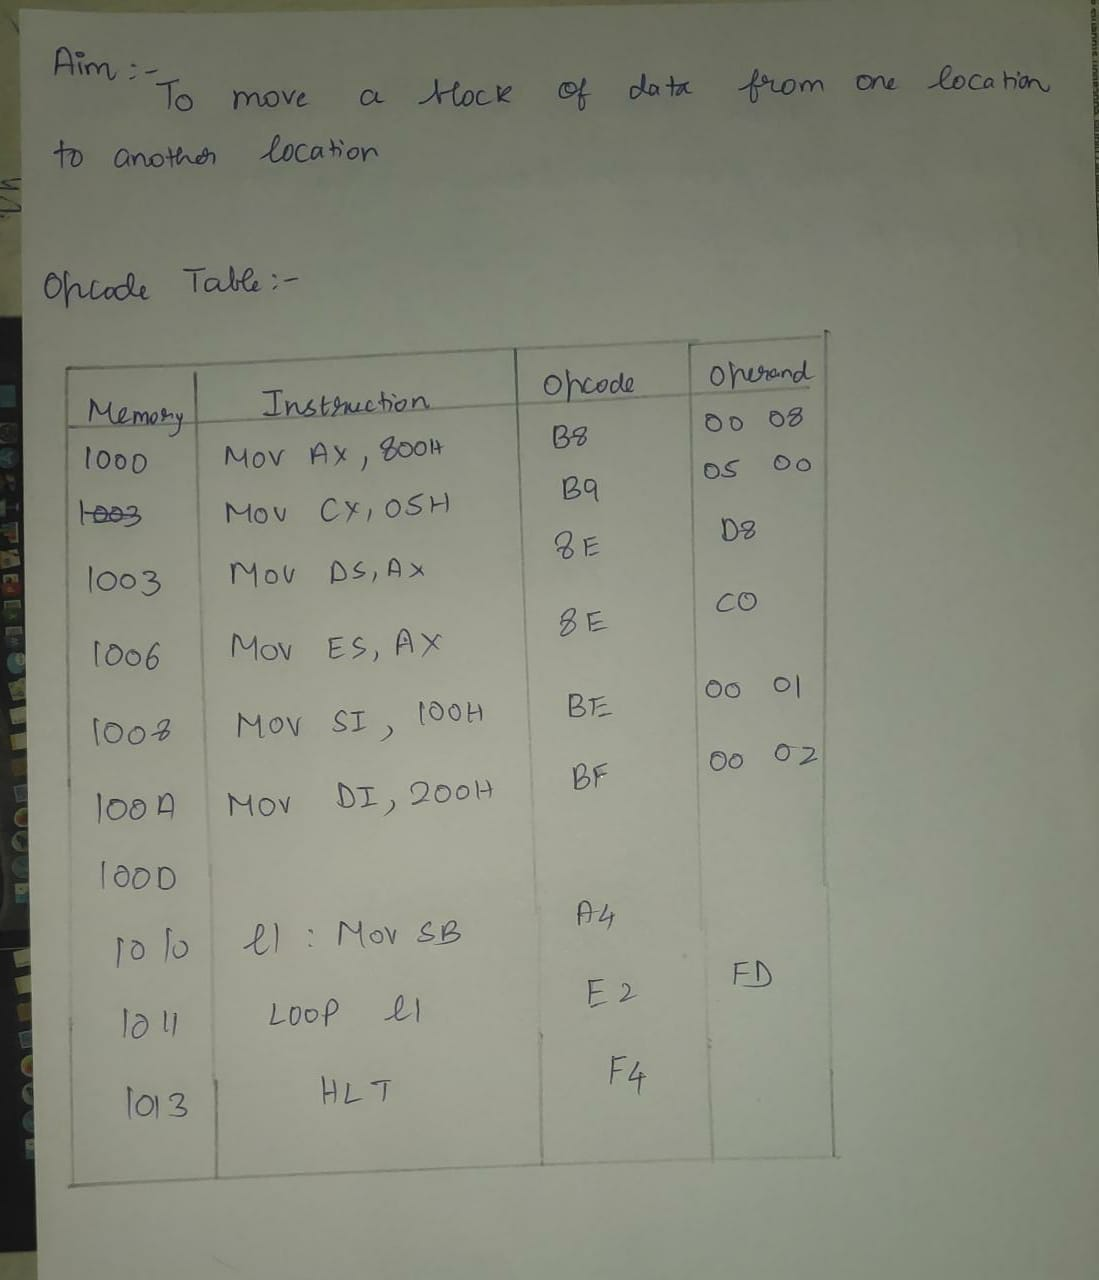 Aim :-
To move a block of data from one location
to another location
Opcode Table :-
Memory Instruction Opcode Operand
1000 MOV AX, 800H B8 00 08
1003 MOV CX, 05H B9 05 00
1003 MOV DS, AX 8E D8
1006 MOV ES, AX 8E C0
1008 MOV SI, 100H BE 00 01
100A MOV DI, 200H BF 00 02
100D
1010 l1 : MOV SB A4
1011 LOOP l1 E2 FD
1013 HLT F4